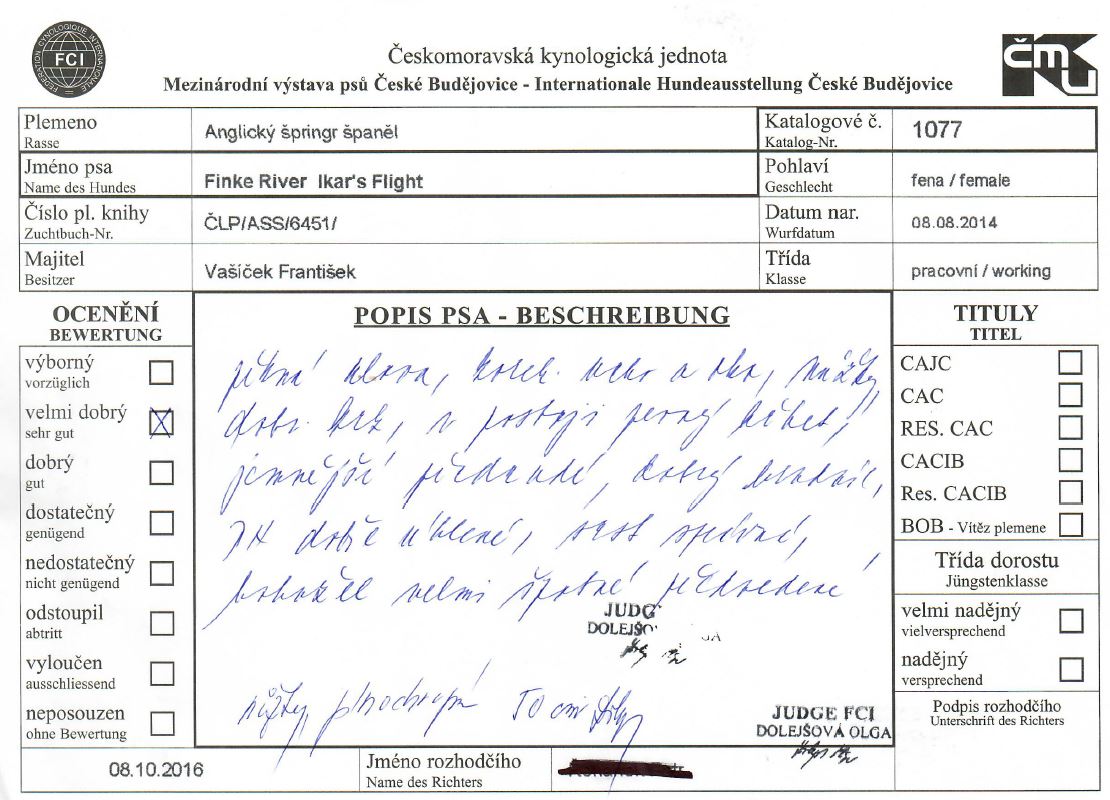 FEDERATION CYNOLOGIQUE INTERNATIONALE
FCI
Českomoravská kynologická jednota
ČMKJ
Mezinárodní výstava psů České Budějovice - Internationale Hundeausstellung České Budějovice
Plemeno
Rasse
Anglický špringr španěl
Katalogové č.
Katalog-Nr.
1077
Jméno psa
Name des Hundes
Finke River Ikar's Flight
Pohlaví
Geschlecht
fena / female
Číslo pl. knihy
Zuchtbuch-Nr.
ČLP/ASS/6451/
Datum nar.
Wurfdatum
08.08.2014
Majitel
Besitzer
Vašíček František
Třída
Klasse
pracovní / working
OCENĚNÍ
BEWERTUNG
výborný
vorzüglich
velmi dobrý
sehr gut
dobrý
gut
dostatečný
genügend
nedostatečný
nicht genügend
odstoupil
abtritt
vyloučen
ausschliessend
neposouzen
ohne Bewertung
POPIS PSA - BESCHREIBUNG
pěkná hlava, korek. ucho a oko, nůžky,
dobr. krk, v postoji pevný hřbet,
jemnější předhrudí, dobrý hrudník,
dobře úhlené, srst správná,
bohužel velmi špatné předvedení
JUDG
DOLEJŠO
GA
nůžky, plnochrupá
JUDGE FCI
DOLEJŠOVÁ OLGA
TITULY
TITEL
CAJC
CAC
RES. CAC
CACIB
Res. CACIB
BOB - Vítěz plemene
Třída dorostu
Jüngstenklasse
velmi nadějný
vielversprechend
nadějný
versprechend
Podpis rozhodčího
Unterschrift des Richters
08.10.2016
Jméno rozhodčího
Name des Richters